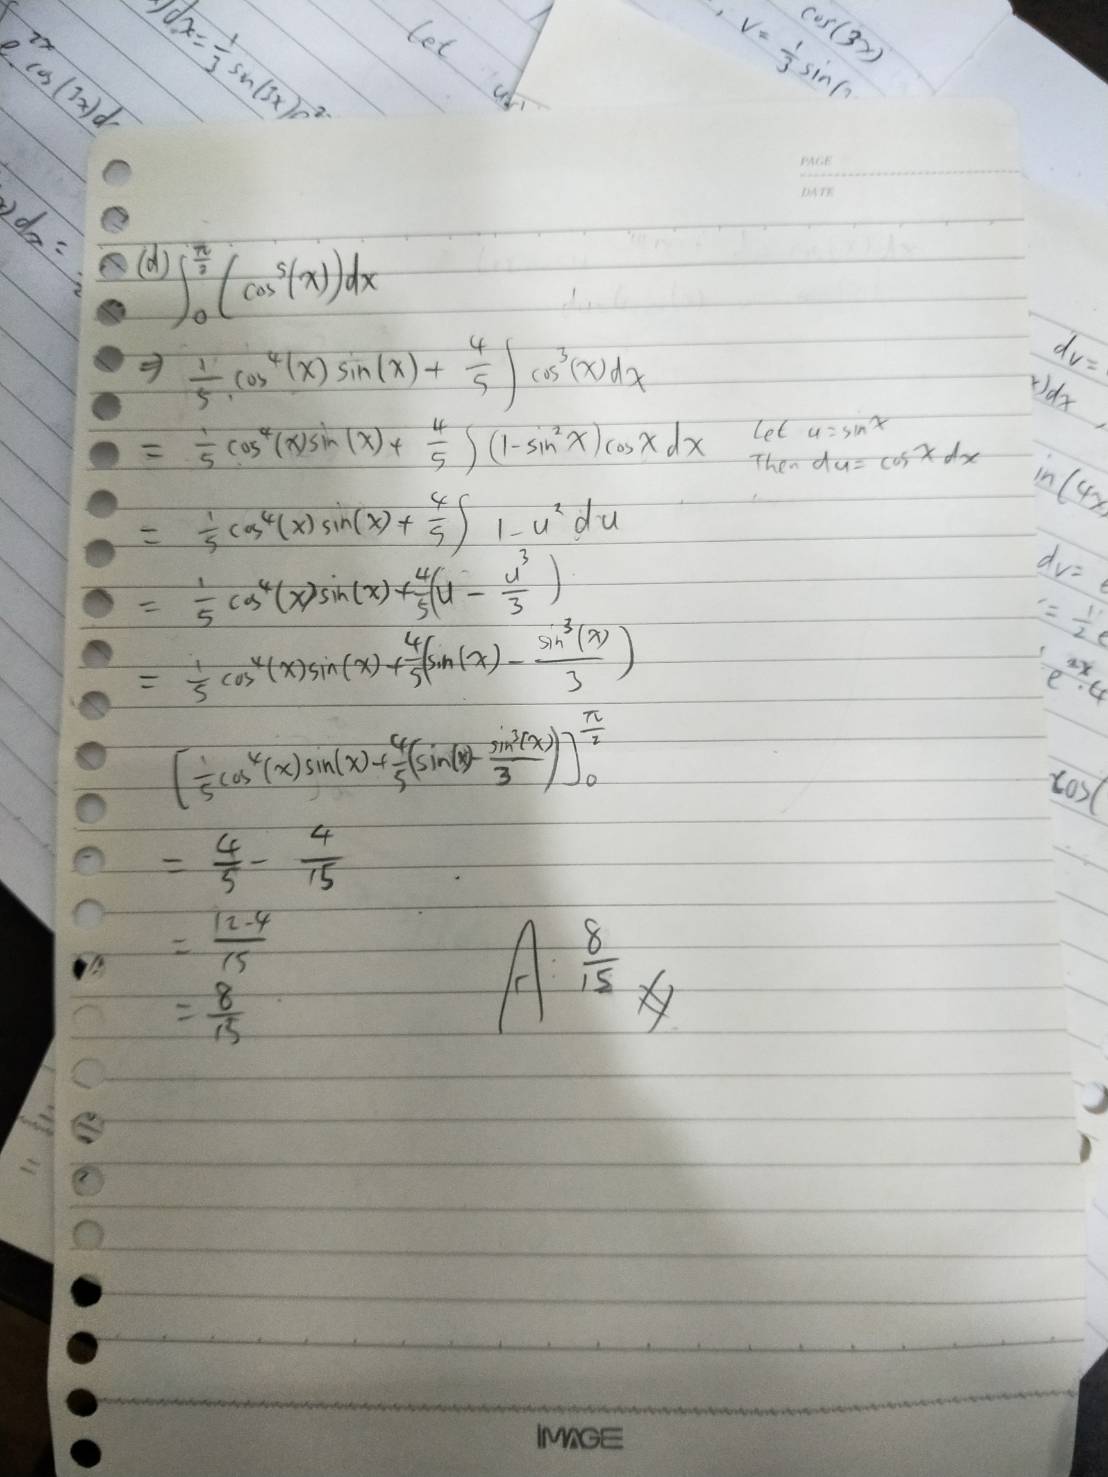 cos(3x)
v = 1/3 sin(
Let
dx = 1/3 sin(3x)
e^2x cos(3x)d
PAGE
DATE
(d) ∫_0^{π/2} (cos^5(x))dx
⇒ 1/5 cos^4(x) sin(x) + 4/5 ∫ cos^3(x)dx
= 1/5 cos^4(x)sin(x) + 4/5 ∫(1-sin^2 x)cos x dx Let u = sin x
Then du = cos x dx
= 1/5 cos^4(x) sin(x) + 4/5 ∫ 1-u^2 du
= 1/5 cos^4(x)sin(x) + 4/5(u - u^3/3)
= 1/5 cos^4(x)sin(x) + 4/5(sin(x) - sin^3(x)/3)
[1/5 cos^4(x)sin(x) + 4/5(sin(x) - sin^3(x)/3)]_0^{π/2}
= 4/5 - 4/15
= 12-4/15
= 8/15
A: 8/15
dv =
)dx
in(4x
dv = e
= 1/2 e
e^2x · 4
cos(
IMAGE